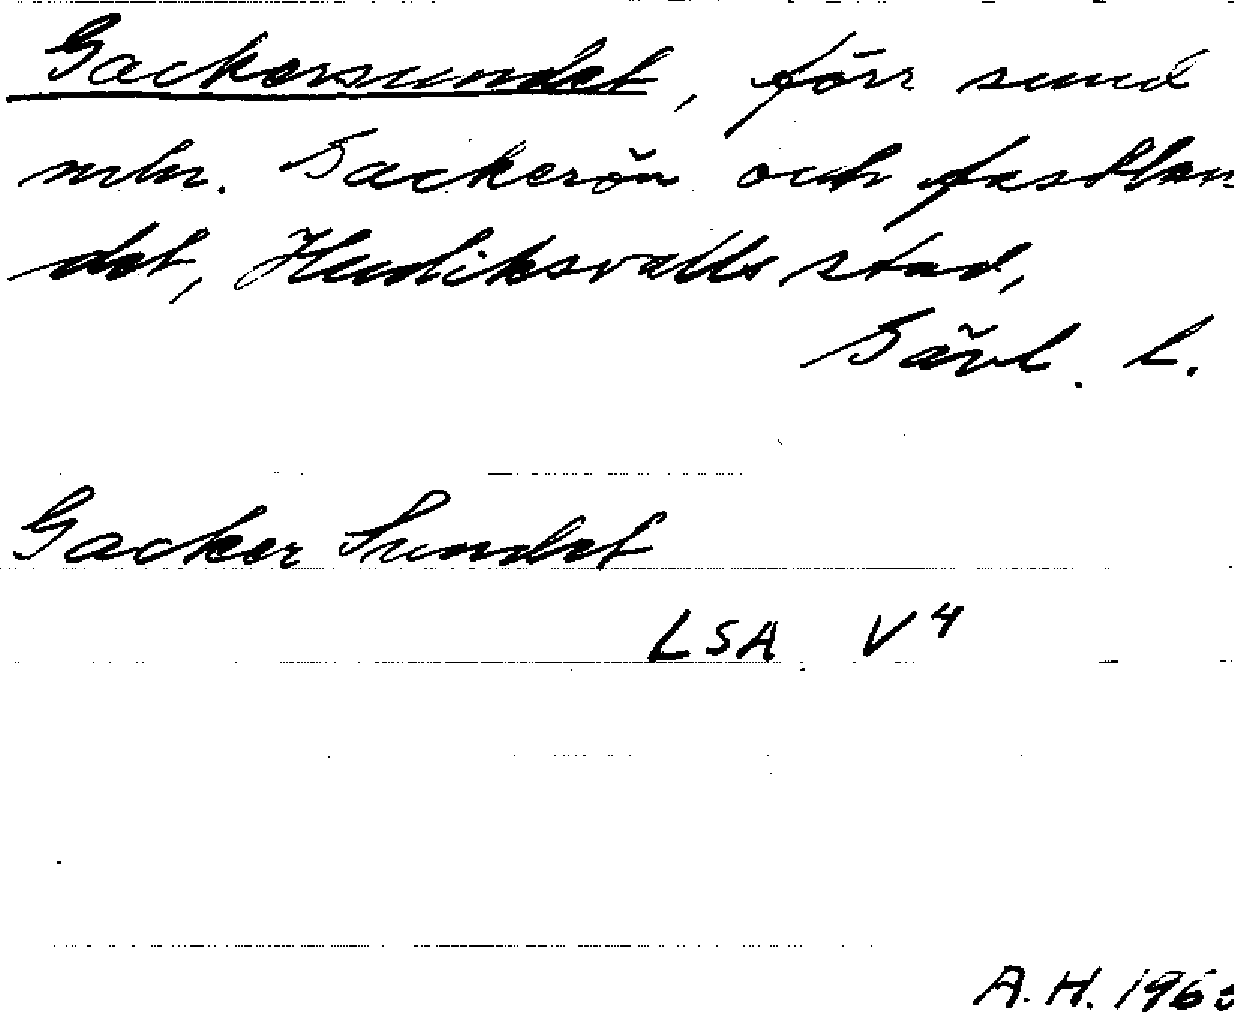 Gackersundet, förr sund
mln. Gackerön och fastlan
det, Hudiksvalls stad,
Gävl. L.
Gacker Sundet
LSA V4
A.H. 196